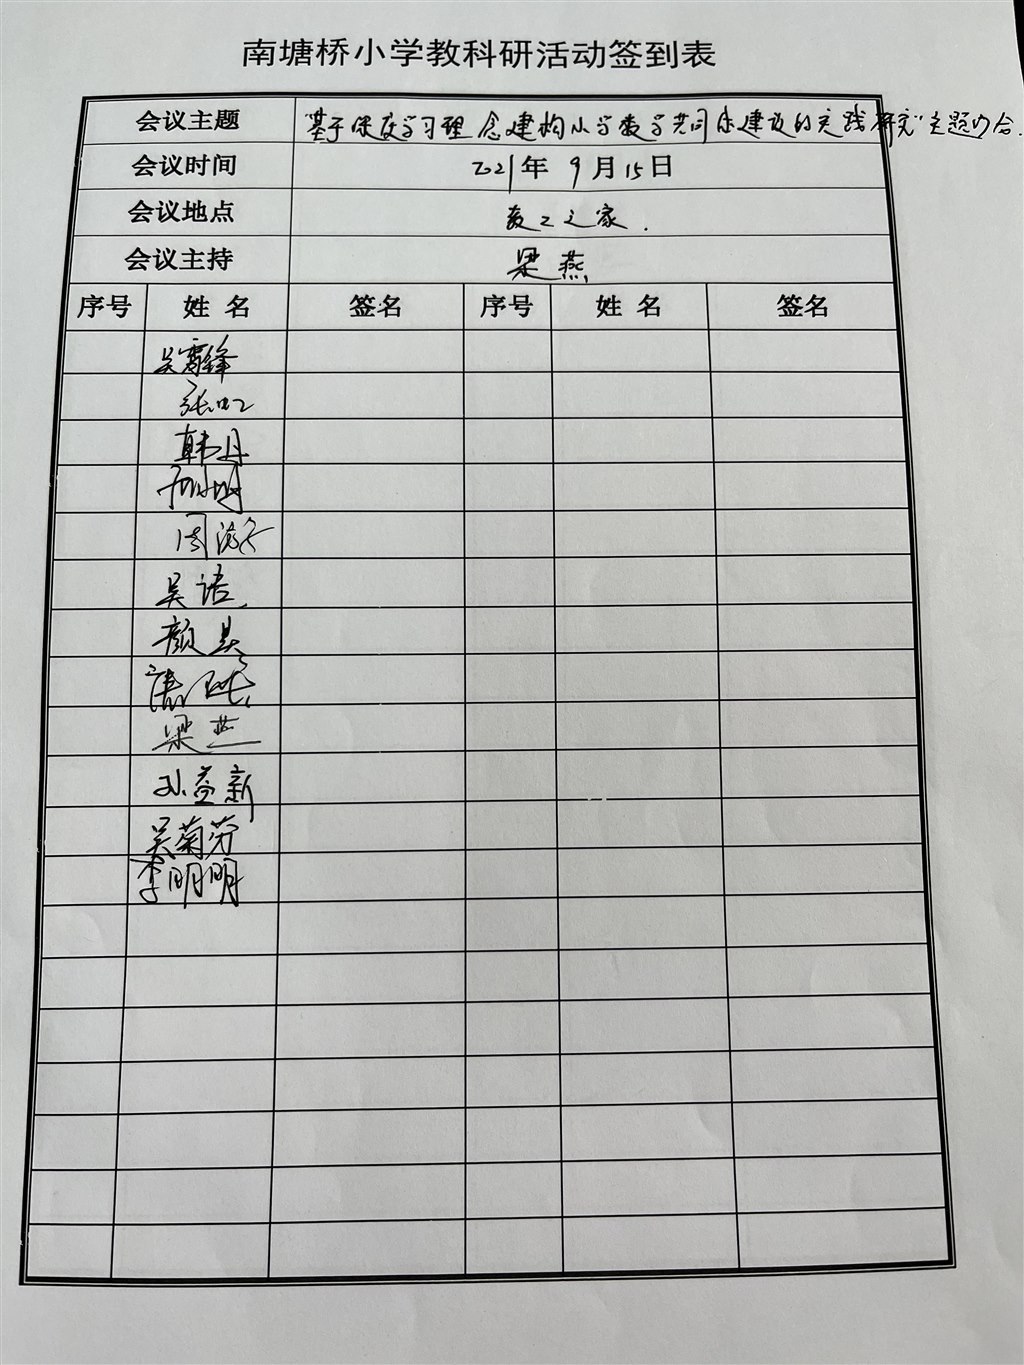 南塘桥小学教科研活动签到表
会议主题 "基于深度学习理念建构小学数学共同体建设的实践研究"主题
会议时间 2021年 9月15日
会议地点 教工之家.
会议主持 梁燕
序号 姓名 签名 序号 姓名 签名
吴霄锋
张虹
韩丹
周
吴语
颜昊
梁燕
孙益新
吴菊芬
李明明